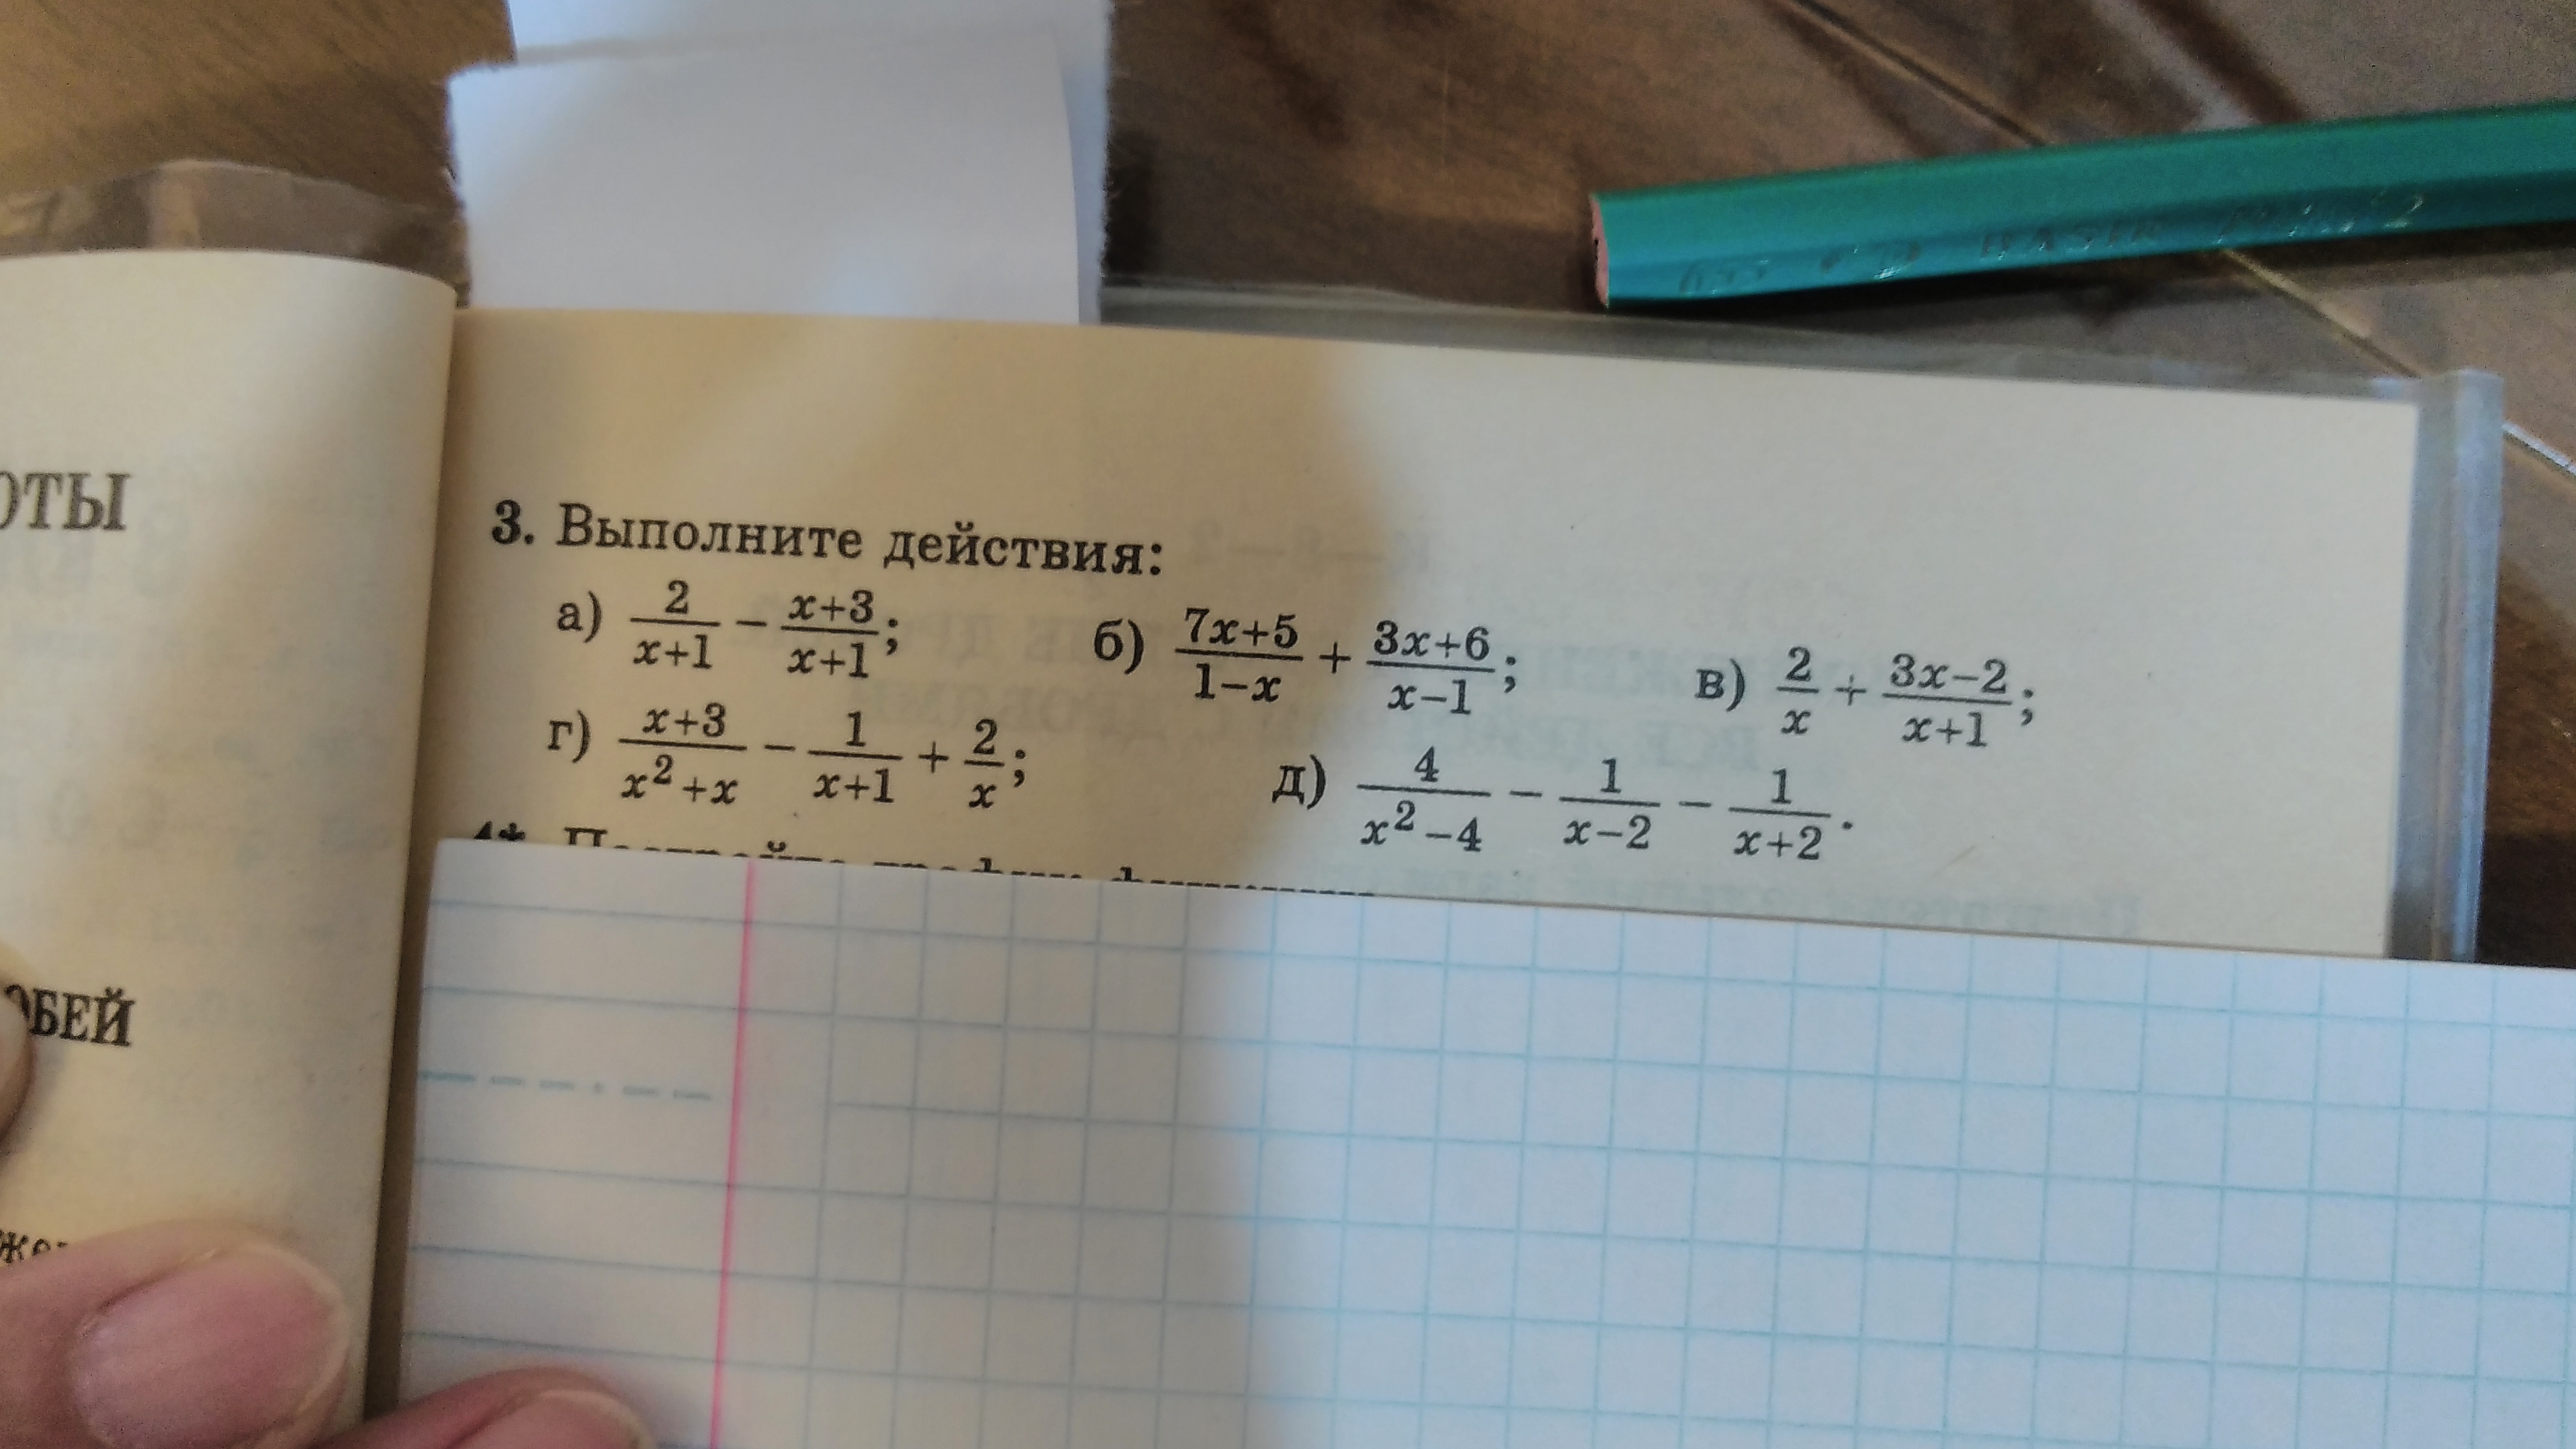 3. Выполните действия:
а) \frac{2}{x+1} - \frac{x+3}{x+1}; б) \frac{7x+5}{1-x} + \frac{3x+6}{x-1}; в) \frac{2}{x} + \frac{3x-2}{x+1};
г) \frac{x+3}{x^2+x} - \frac{1}{x+1} + \frac{2}{x}; д) \frac{4}{x^2-4} - \frac{1}{x-2} - \frac{1}{x+2}.
ОТЫ
ОБЕЙ